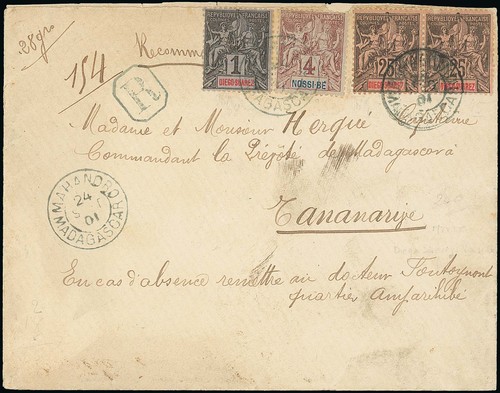 28grs
Recomm
154
R
RÉPUBLIQUE FRANÇAISE
1
DIEGO-SUAREZ
RÉPUBLIQUE FRANÇAISE
4
NOSSI-BÉ
RÉPUBLIQUE FRANÇAISE
25
DIEGO-SUAREZ
RÉPUBLIQUE FRANÇAISE
25
DIEGO-SUAREZ
MADAGASCAR
01
Madame et Monsieur Herqué Capitaine
Commandant la Prévôté de Madagascar à
Tananarive
MAHANORO
24
01
MADAGASCAR
En cas d'absence remettre au docteur Fontoynont
quartier Amparibibé